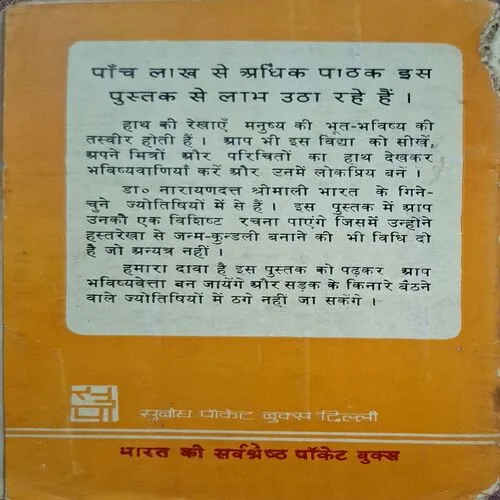 पाँच लाख से अधिक पाठक इस
पुस्तक से लाभ उठा रहे हैं ।
हाथ की रेखाएँ मनुष्य की भूत-भविष्य की
तस्वीर होती हैं । आप भी इस विद्या को सीखें,
अपने मित्रों और परिचितों का हाथ देखकर
भविष्यवाणियाँ करें और उनमें लोकप्रिय बनें ।
डा० नारायणदत्त श्रीमाली भारत के गिने-
चुने ज्योतिषियों में से हैं । इस पुस्तक में आप
उनकी एक विशिष्ट रचना पाएंगे जिसमें उन्होने
हस्तरेखा से जन्म-कुन्डली बनाने की भी विधि दी
है जो अन्यत्र नहीं ।
हमारा दावा है इस पुस्तक को पढ़कर आप
भविष्यवेत्ता बन जायेंगे और सड़क के किनारे बैठने
वाले ज्योतिषियों में ठगे नहीं जा सकेंगे ।
सुबोध पॉकेट बुक्स दिल्ली
भारत की सर्वश्रेष्ठ पॉकेट बुक्स